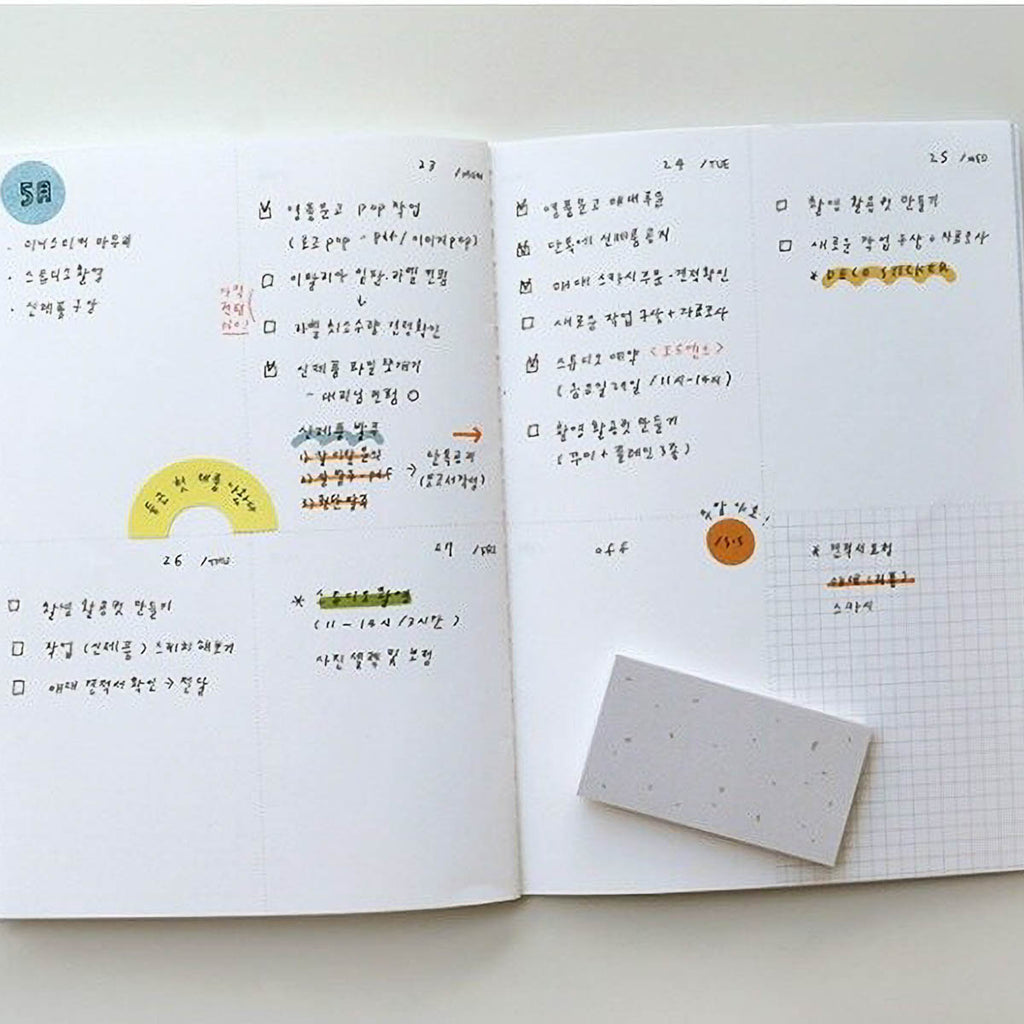 5月
· 미니스티커 마무리
· 스튜디오 촬영
· 신제품 구상
23 /MON
영풍문고 pop 작업
(로고 pop - pdf / 이미지 pop)
이탈리아 입판·라벨 컨펌
↓
라벨 최소수량·진행확인
신제품 파일 쪼개기
- 대표님 컨펌 ○
신제품 발주
→
단톡공지
(보고서작성)
24 /TUE
영풍문고 매대주문
단톡에 신제품공지
매대 스카시 주문·견적확인
새로운 작업 구상 + 자료조사
스튜디오 예약
(금요일 27일 / 11시-14시)
촬영 활용컷 만들기
(꾸미 + 플레인 3종)
25 /WED
촬영 활용컷 만들기
새로운 작업 구상 + 자료조사
* DECO STICKER
26 /THU
촬영 활용컷 만들기
작업 (신제품) 스케치 해보기
매대 견적서 확인 → 전달
27 /FRI
* 스튜디오 촬영
(11 - 14시 / 3시간)
사진 셀렉 및 보정
off
* 견적서 요청
스카시